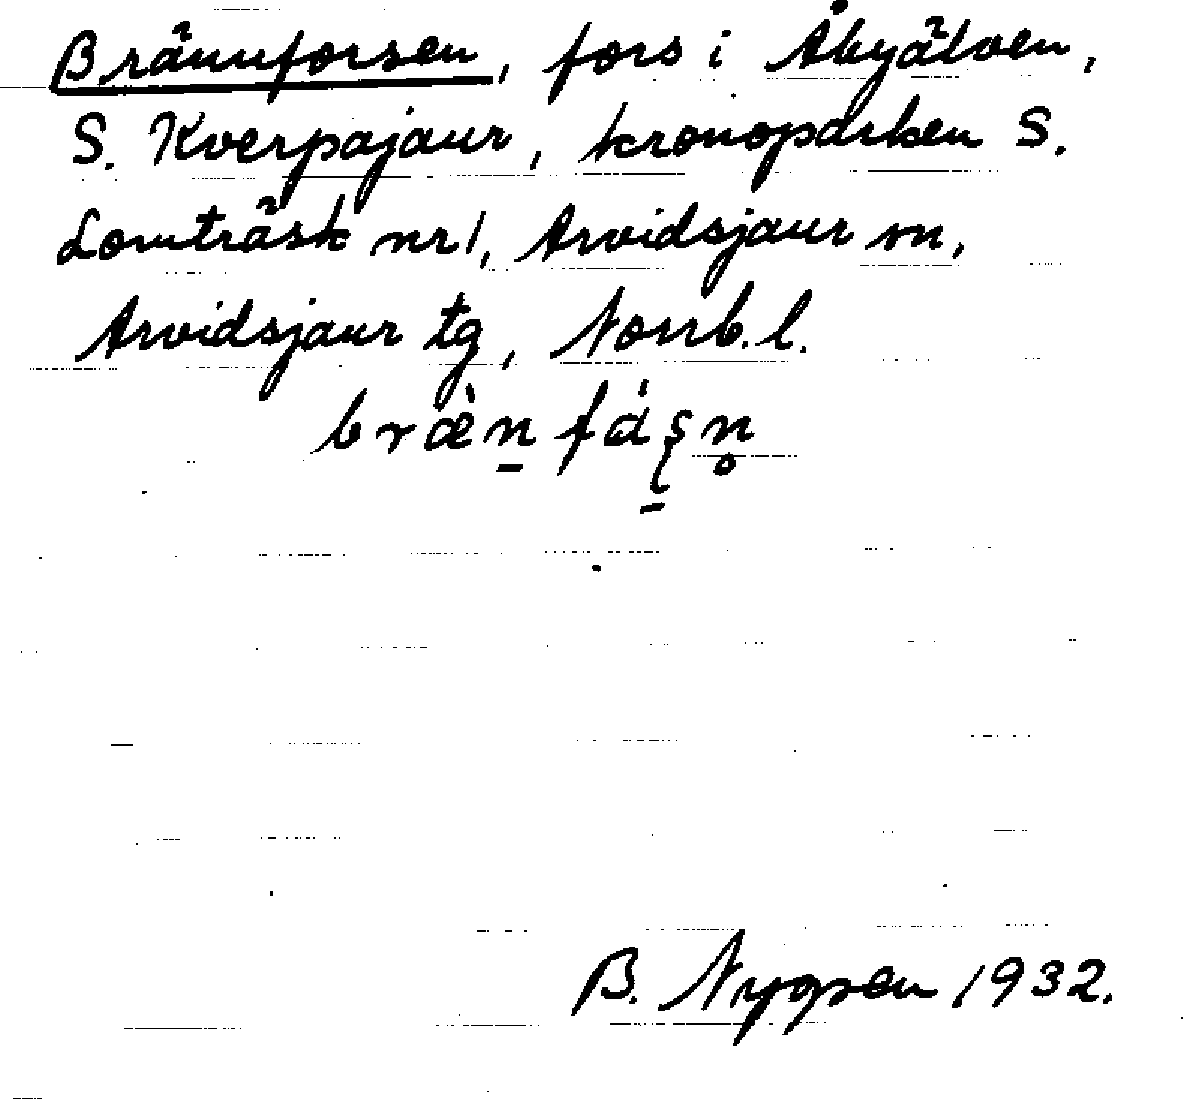 Brännforsen, fors i Åbyälven,
S. Kverpajaur, kronoparken S.
Lomträsk nr 1, Arvidsjaur sn,
Arvidsjaur tg, Norrb. l.
bræ̀n̠ fás̠n̥
B. Nygren 1932.